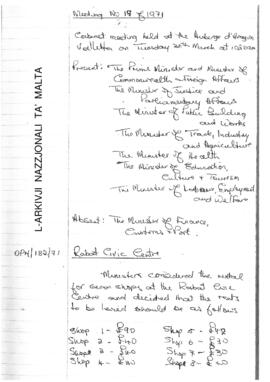 Meeting No 18 of 1971
Cabinet meeting held at the Auberge d'Aragon
Valletta on Tuesday March at
Present: The Prime Minister and Minister of
Commonwealth & Foreign Affairs
The Minister of Justice and
Parliamentary Affairs
The Minister of Public Building
and Works
The Minister of Trade, Industry
and Agriculture
The Minister of Health
The Minister of Education,
Culture & Tourism
The Minister of Labour, Employment
and Welfare
Absent: The Minister of Finance,
Customs & Port.
L-ARKIVJI NAZZJONALI TA' MALTA
OPM/182/71 Rabat Civic Centre
Ministers considered the
for seven shops at the Rabat Civic
Centre and decided that the rents
to be should be as follows
Shop 1 - £90 Shop 5 -
Shop 2 - £40 Shop 6 - £30
Shop 3 - £40 Shop 7 - £30
Shop 4 - Shop 8 -